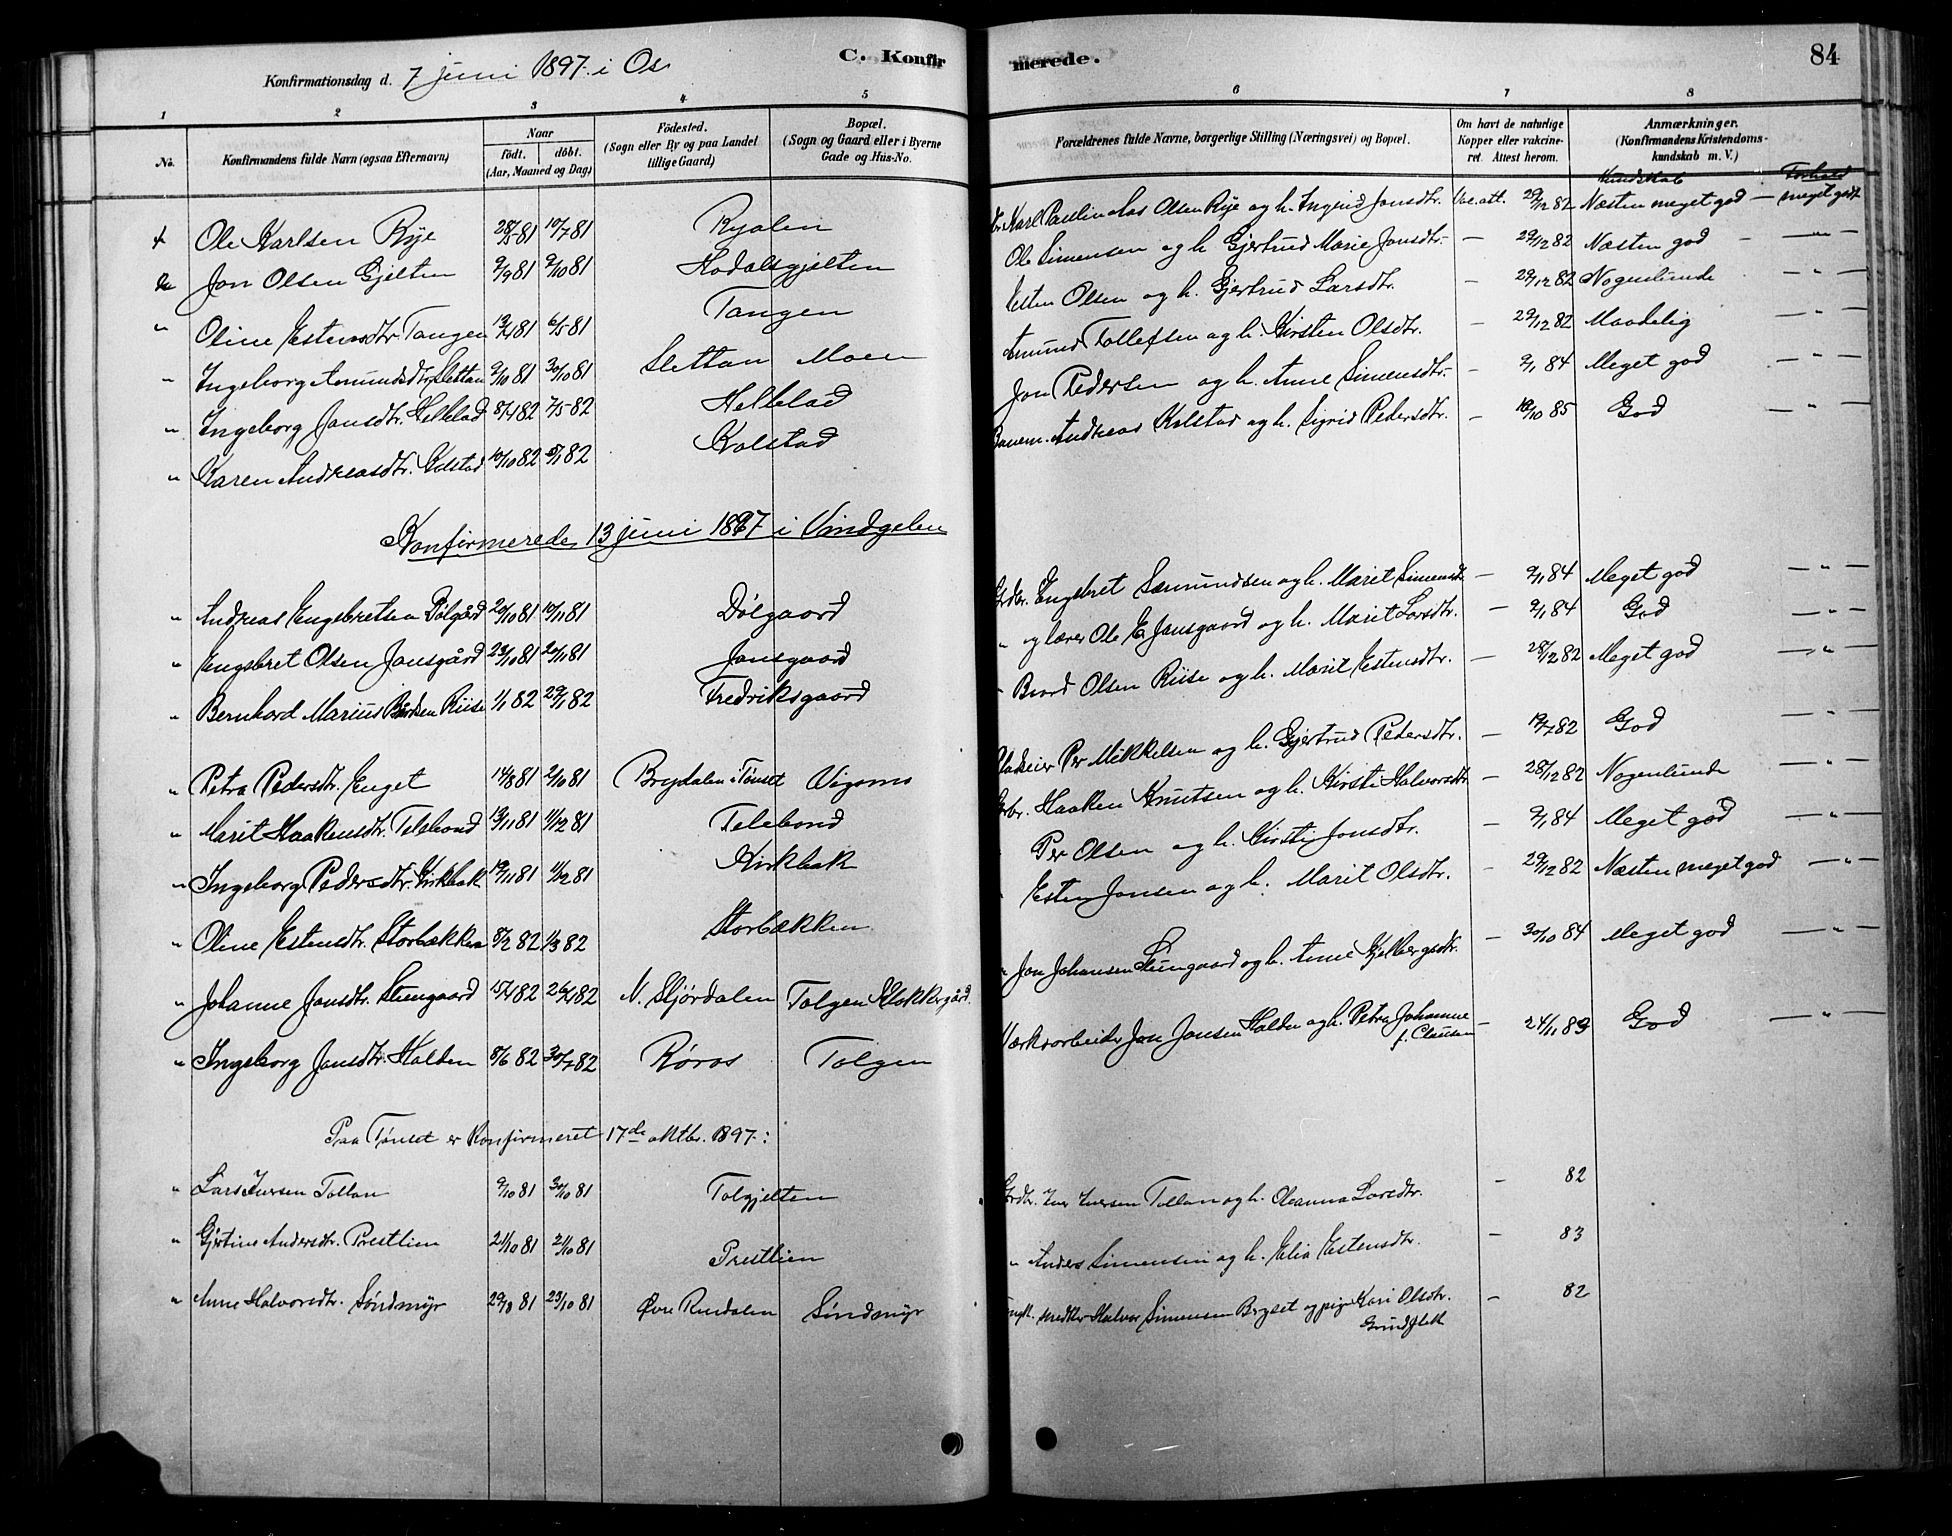 Konfirmationsdag d. 7 juni 1897. i Os
C. Konfirmerede.
84
1 2 3 4 5 6 7 8
No.
Konfirmandens fulde Navn (ogsaa Efternavn)
Naar
födt. döbt.
(Aar, Maaned og Dag)
Födested.
(Sogn eller By og paa Landet
tillige Gaard)
Bopæl.
(Sogn og Gaard eller i Byerne
Gade og Hus-No.
Forældrenes fulde Navne, borgerlige Stilling (Næringsvei) og Bopæl.
Om havt de naturlige
Kopper eller vakcine-
ret. Attest herom.
Anmærkninger.
(Konfirmandens Kristendoms-
kundskab m. V.)
Kundskab Forhold
Ole Karlsen Rye 28/5 81 10/7 81 Ryalen Karl Paulin Aas Olsen Rye og h. Ingrid Jonsdtr. Vac. att. 29/12 82 Næsten meget god — meget godt
Jon Olsen Gjelten 2/9 81 9/10 81 Hodalsgjelten Ole Simensen og h. Gjertrud Marie Jonsdtr. — 29/12 82 Næsten god — " —
" Oline Estensdtr. Tangen 13/4 81 6/5 81 Tangen Esten Olsen og h. Gjertrud Larsdtr. — 29/12 82 Nogenlunde — " —
" Ingeborg Amundsdtr. Slettan 9/10 81 30/10 81 Slettan Moen Amund Tollefsen og h. Kirsten Olsdtr. — 29/12 82 Maadelig — " —
" Ingeborg Jonsdtr. Hellelad 8/4 82 7/5 82 Hellelad Jon Pedersen og h. Anne Simensdtr. — 9/1 84 Meget god — " —
" Karen Andreasdtr. Kolstad 10/10 82 5/1 82 Kolstad Banem. Andreas Kolstad og h. Sigrid Pedersdtr. — 18/10 85 God — " —
Konfirmerede 13 juni 1897 i Vindgelen
" Andreas Engebretsen Dølgård 20/10 81 10/11 81 Dølgaard Grdbr. Engebret Sæmundsen og h. Marit Simensdt. — 9/1 84 Meget god — " —
" Engebret Olsen Jonsgård 23/10 81 20/11 81 Jonsgaard " og lærer Ole E. Jonsgaard og h. Marit Larsdtr. — 9/1 84 God — " —
" Bernhard Marius Bårdsen Riise 1/1 82 29/1 82 Fredriksgaard " Baard Olsen Riise og h. Marit Estensdtr. — 28/12 82 Meget god — " —
" Petra Pedersdtr. Enget 14/8 81 2/10 81 Brydalen i Tønset Vigomo Per Mikkelsen og h. Gjertrud Pedersdtr. — 19/7 82 God — " —
" Marit Haakensdtr. Telebond 13/11 81 11/12 81 Telebond Haaken Knutsen og h. Kirsti Halvorsdtr. — 28/12 82 Nogenlunde — " —
" Ingeborg Pedersdtr. Kirkbak 19/11 81 11/12 81 Kirkbak Per Olsen og h. Kirsti Jonsdtr. — 9/1 84 Meget god — " —
" Oline Estensdtr. Storbækken 8/2 82 1/3 82 Storbækken Esten Jonsen og h. Marit Olsdtr. — 29/12 82 Næsten meget god — " —
" Johanne Jonsdtr. Stuengaard 15/4 82 26/4 82 N. Stjørdalen Tolgen Klokkergård " Jon Johansen Stuengaard og h. Anne Kjelbergsdtr. — 30/10 84 Meget god — " —
" Ingeborg Jonsdtr. Holden 8/6 82 30/7 82 Røros Tolgen Værksarbeider Jon Jonsen Holden og h. Petra Johanne f. Clausen — 24/11 89 God — " —
Paa Tønset er Konfirmeret 17de oktbr. 1897:
" Lars Iversen Tollan 9/10 81 30/10 81 Tolgjelten Grdbr. Iver Iversen Tollan og h. Oleanna Larsdtr. — 82
" Gjertine Andersdtr. Prestlien 21/10 81 21/10 81 Prestlien " Anders Simensen og h. Elia Estensdtr. — 83
" Anne Halvorsdtr. Søndmyr 29/8 81 23/10 81 Øvre Rendalen Søndmyr Halvor Simensen Bryset og pige Kari Olsdtr. — 82